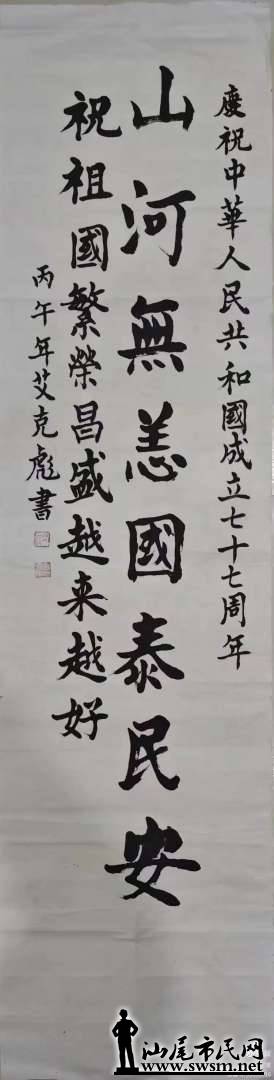 慶祝中華人民共和國成立七十七周年
山河無恙國泰民安
祝祖國繁榮昌盛越来越好
丙午年艾克彪書
汕尾市民网
www.swsm.net